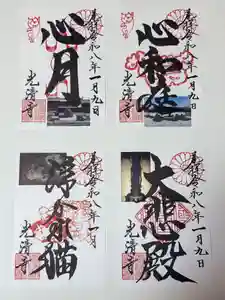 奉拝 令和八年一月九日
心月
光清寺
奉拝 令和八年一月九日
心和
光清寺
奉拝 令和八年一月
浮かれ猫
光清寺
奉拝 令和八年一月九日
大悲殿
光清寺